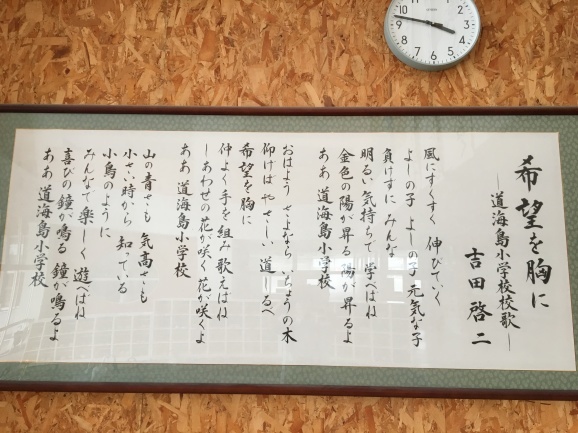 希望を胸に
―道海島小学校校歌―
吉田啓二
風にすくすく 伸びていく
よしの子 よしの子 元気な子
負けずに みんな
明るい気持ちで 学べばね
金色の陽が昇る 陽が昇るよ
ああ 道海島小学校
おはよう さよなら いちょうの木
仰げば やさしい 道しるべ
希望を胸に
仲よく手を組み 歌えばね
しあわせの花が咲く 花が咲くよ
ああ 道海島小学校
山の青さも 気高さも
小さい時から 知っている
小鳥のように
みんなで楽しく 遊べばね
喜びの鐘が鳴る 鐘が鳴るよ
ああ 道海島小学校
12
1
2
3
4
5
6
7
8
9
10
11